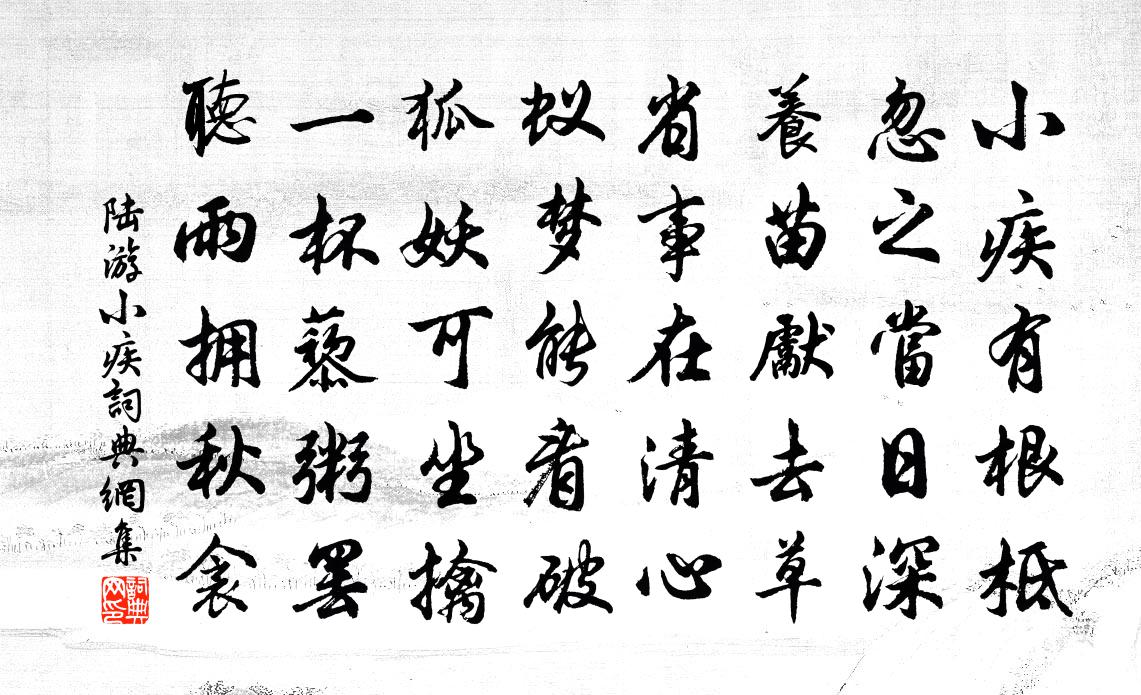 小疾有根柢
忽之當日深
養苗獻去草
省事在清心
蚁梦能看破
狐妖可坐擒
一杯藜粥罢
聽雨拥秋衾
陆游小疾詞典網集
詞典网印